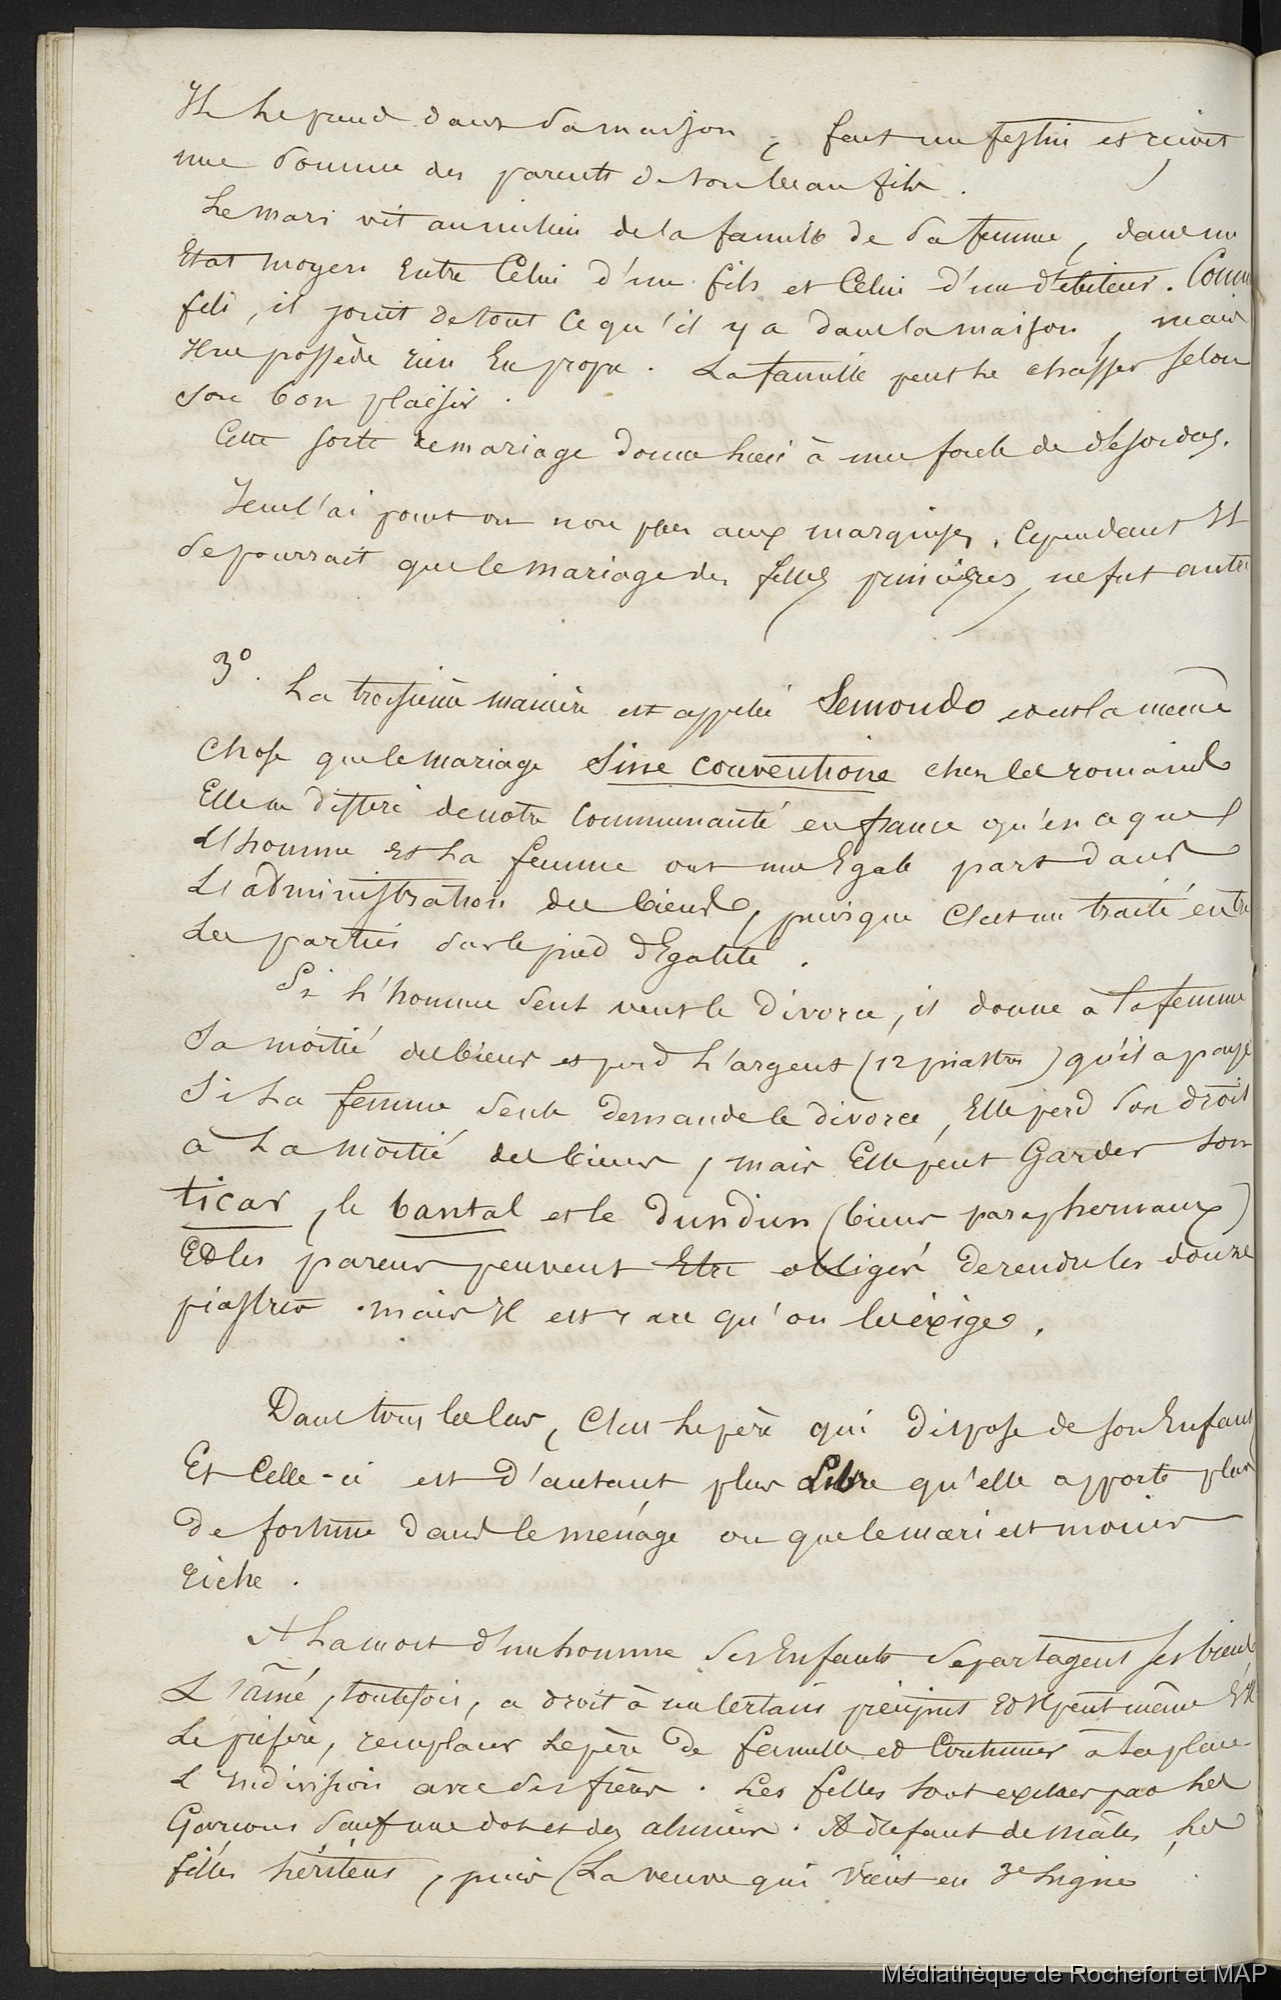 Il le prend dans sa maison, fait un festin et reçoit
une somme des parents de son beau fils.
Le mari vit au milieu de la famille de sa femme, dans un
Etat moyen Entre Celui d'un fils et Celui d'un débiteur. Comme
fils, il jouit de tout ce qu'il y a dans la maison, mais
Il ne possède rien En propre. La famille peut le chasser selon
son bon plaisir.
Cette sorte de mariage donne lieu à une foule de désordres.
Je ne l'ai point vu non plus aux marquises. Cependant Il
se pourrait que le mariage des filles princières ne fut autre
3°. La troisième manière est appelée Semondo et est la même
chose que le mariage Sine conventione chez les romains
Elle ne diffère de notre Communauté en france qu'en ce que
L'homme et La femme ont une Egale part dans
L'administration des biens, puisque C'est un traité entre
Les parties sur le pied d'Egalité.
Si L'homme seul veut le Divorce, il donne à la femme
Sa moitié des biens et perd L'argent (12 piastres) qu'il a payé
Si La femme seule demande le divorce, Elle perd son droit
à La moitié des biens, mais Elle peut Garder son
ticar, le bantal et le Dundun (biens paraphernaux)
Et les parens peuvent Etre obligés de rendre les douze
piastres. mais Il est rare qu'on les éxige.
Dans tous les cas, C'est Le père qui dispose de son Enfant
Et Celle-ci est D'autant plus Libre qu'elle apporte plus
De fortune Dans le ménage ou que le mari est moins
riche.
A La mort d'un homme ses Enfants se partagent ses biens
L'aîné, toutefois, a droit à un certain préciput et Il peut même s'il
Le préfère, remplacer Le père de famille et Continuer à sa place
L'indivision avec ses frères. Les filles sont exclues par les
Garçons Sauf une dot et des alimens. A defaut de mâles, les
filles héritent, puis La veuve qui vient en 3e Ligne
Médiathèque de Rochefort et MAP